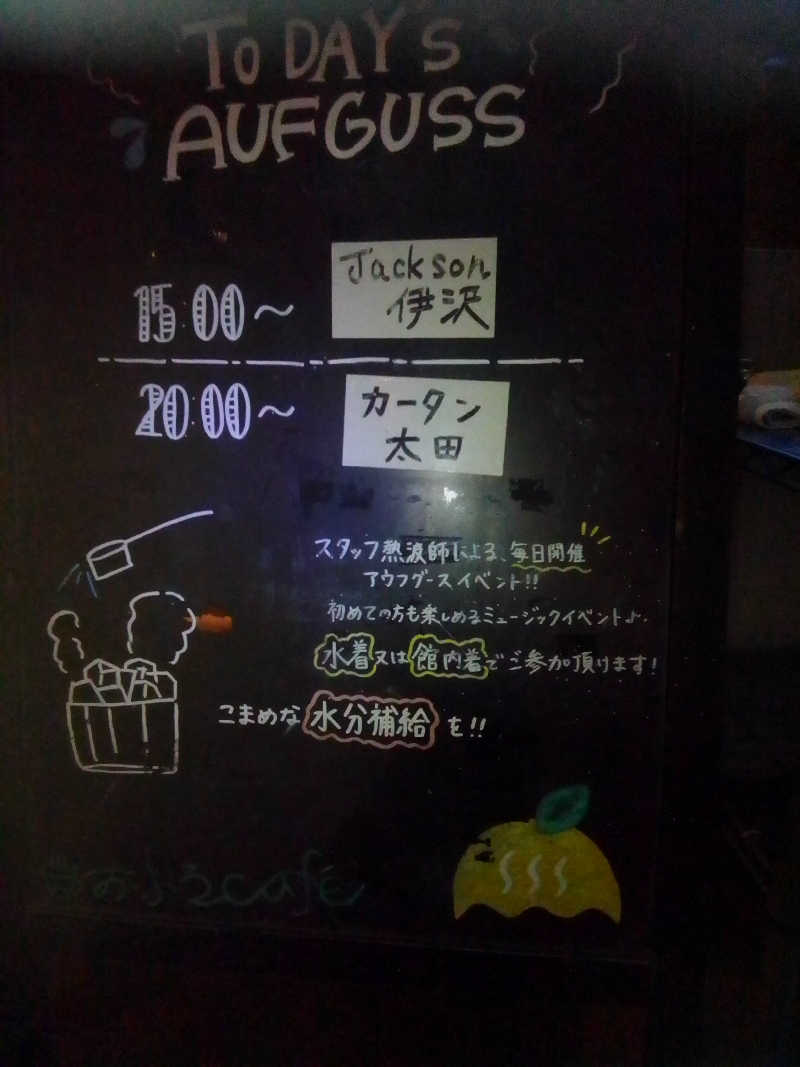 TODAY'S
AUFGUSS
15:00〜
Jackson
伊沢
20:00〜
カータン
太田
スタッフ熱波師による、毎日開催
アウフグースイベント!!
初めての方も楽しめるミュージックイベント♪.
水着又は館内着でご参加頂けます!
こまめな水分補給を!!
おふろcafé